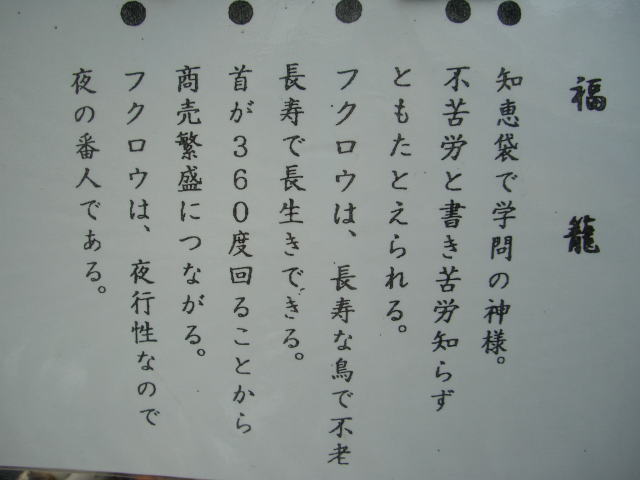 福籠
知恵袋で学問の神様。
不苦労と書き苦労知らず
ともたとえられる。
フクロウは、長寿な鳥で不老
長寿で長生きできる。
首が360度回ることから
商売繁盛につながる。
フクロウは、夜行性なので
夜の番人である。